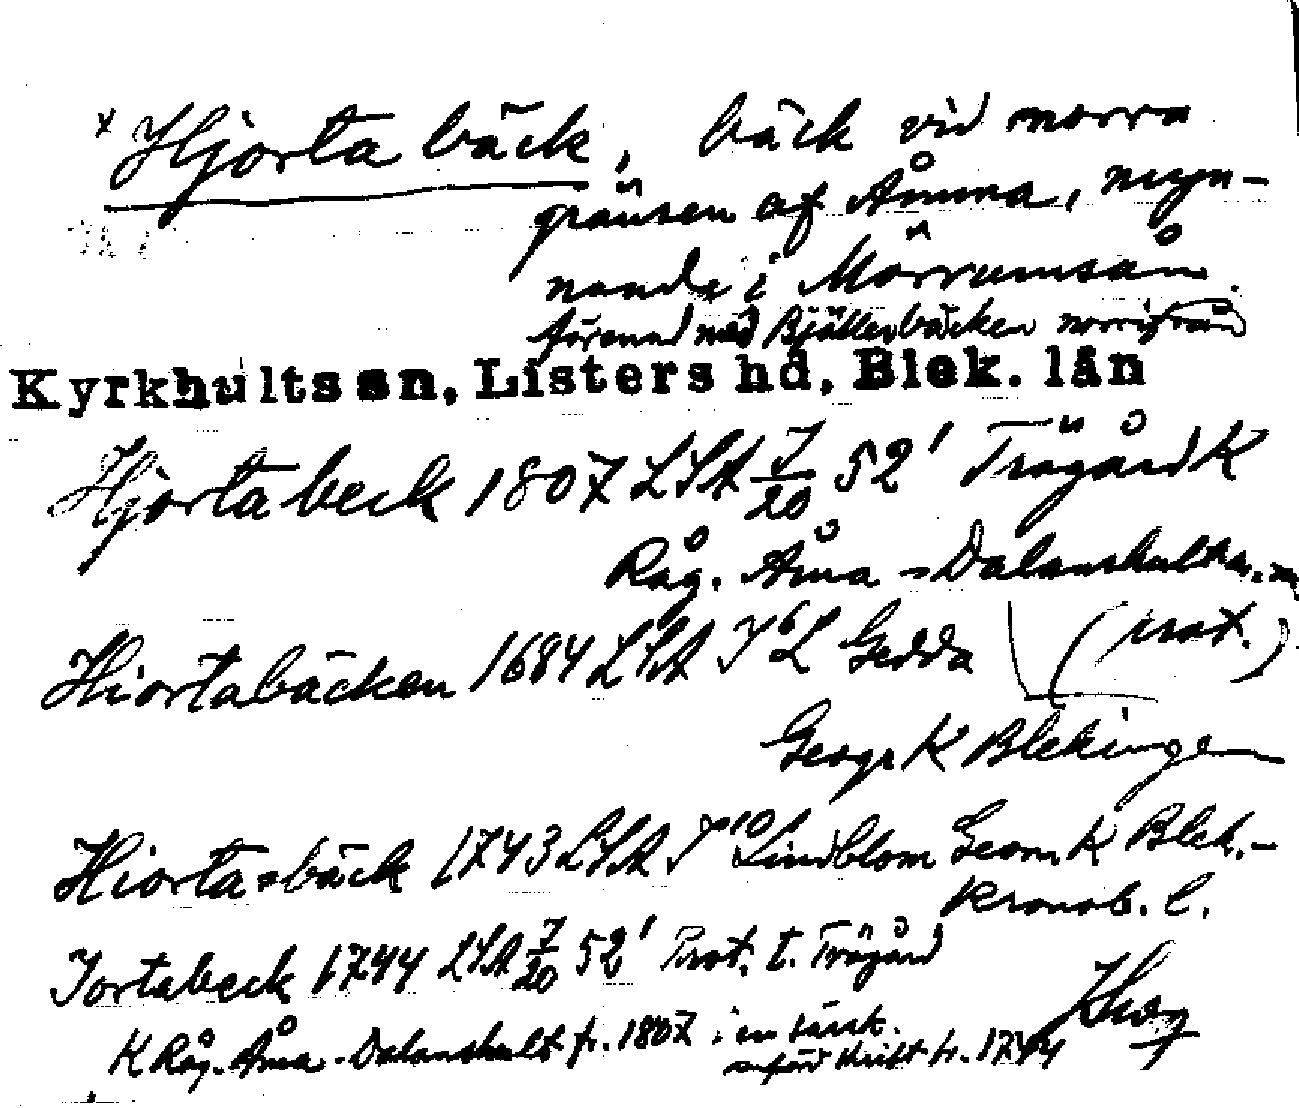 x Hjorta bäck, bäck vid norra
gränsen af Åmma, mynnande
nande i Mörrumsån.
förenad med Bjällerbäcken norrifrån
Kyrkhults sn, Listers hd, Blek. län
Hjorta beck 1807 LSA 7/20 52' Trägård K
Råg. Åma - Dalanshult m.m.
Hiortabäcken 1684 LSA Y 6 L Gedda (prot.)
Geogr K Blekinge
Hiorta-bäck 1743 LSA Y 10 Lindblom Geom K Blek.-
Kronob. l.
Jortabeck 1744 LSA 7/20 52' Prot. t. Trägård
K Råg. Åma - Dalanshult fr. 1807 i en särsk.
införd skrift fr. 1744